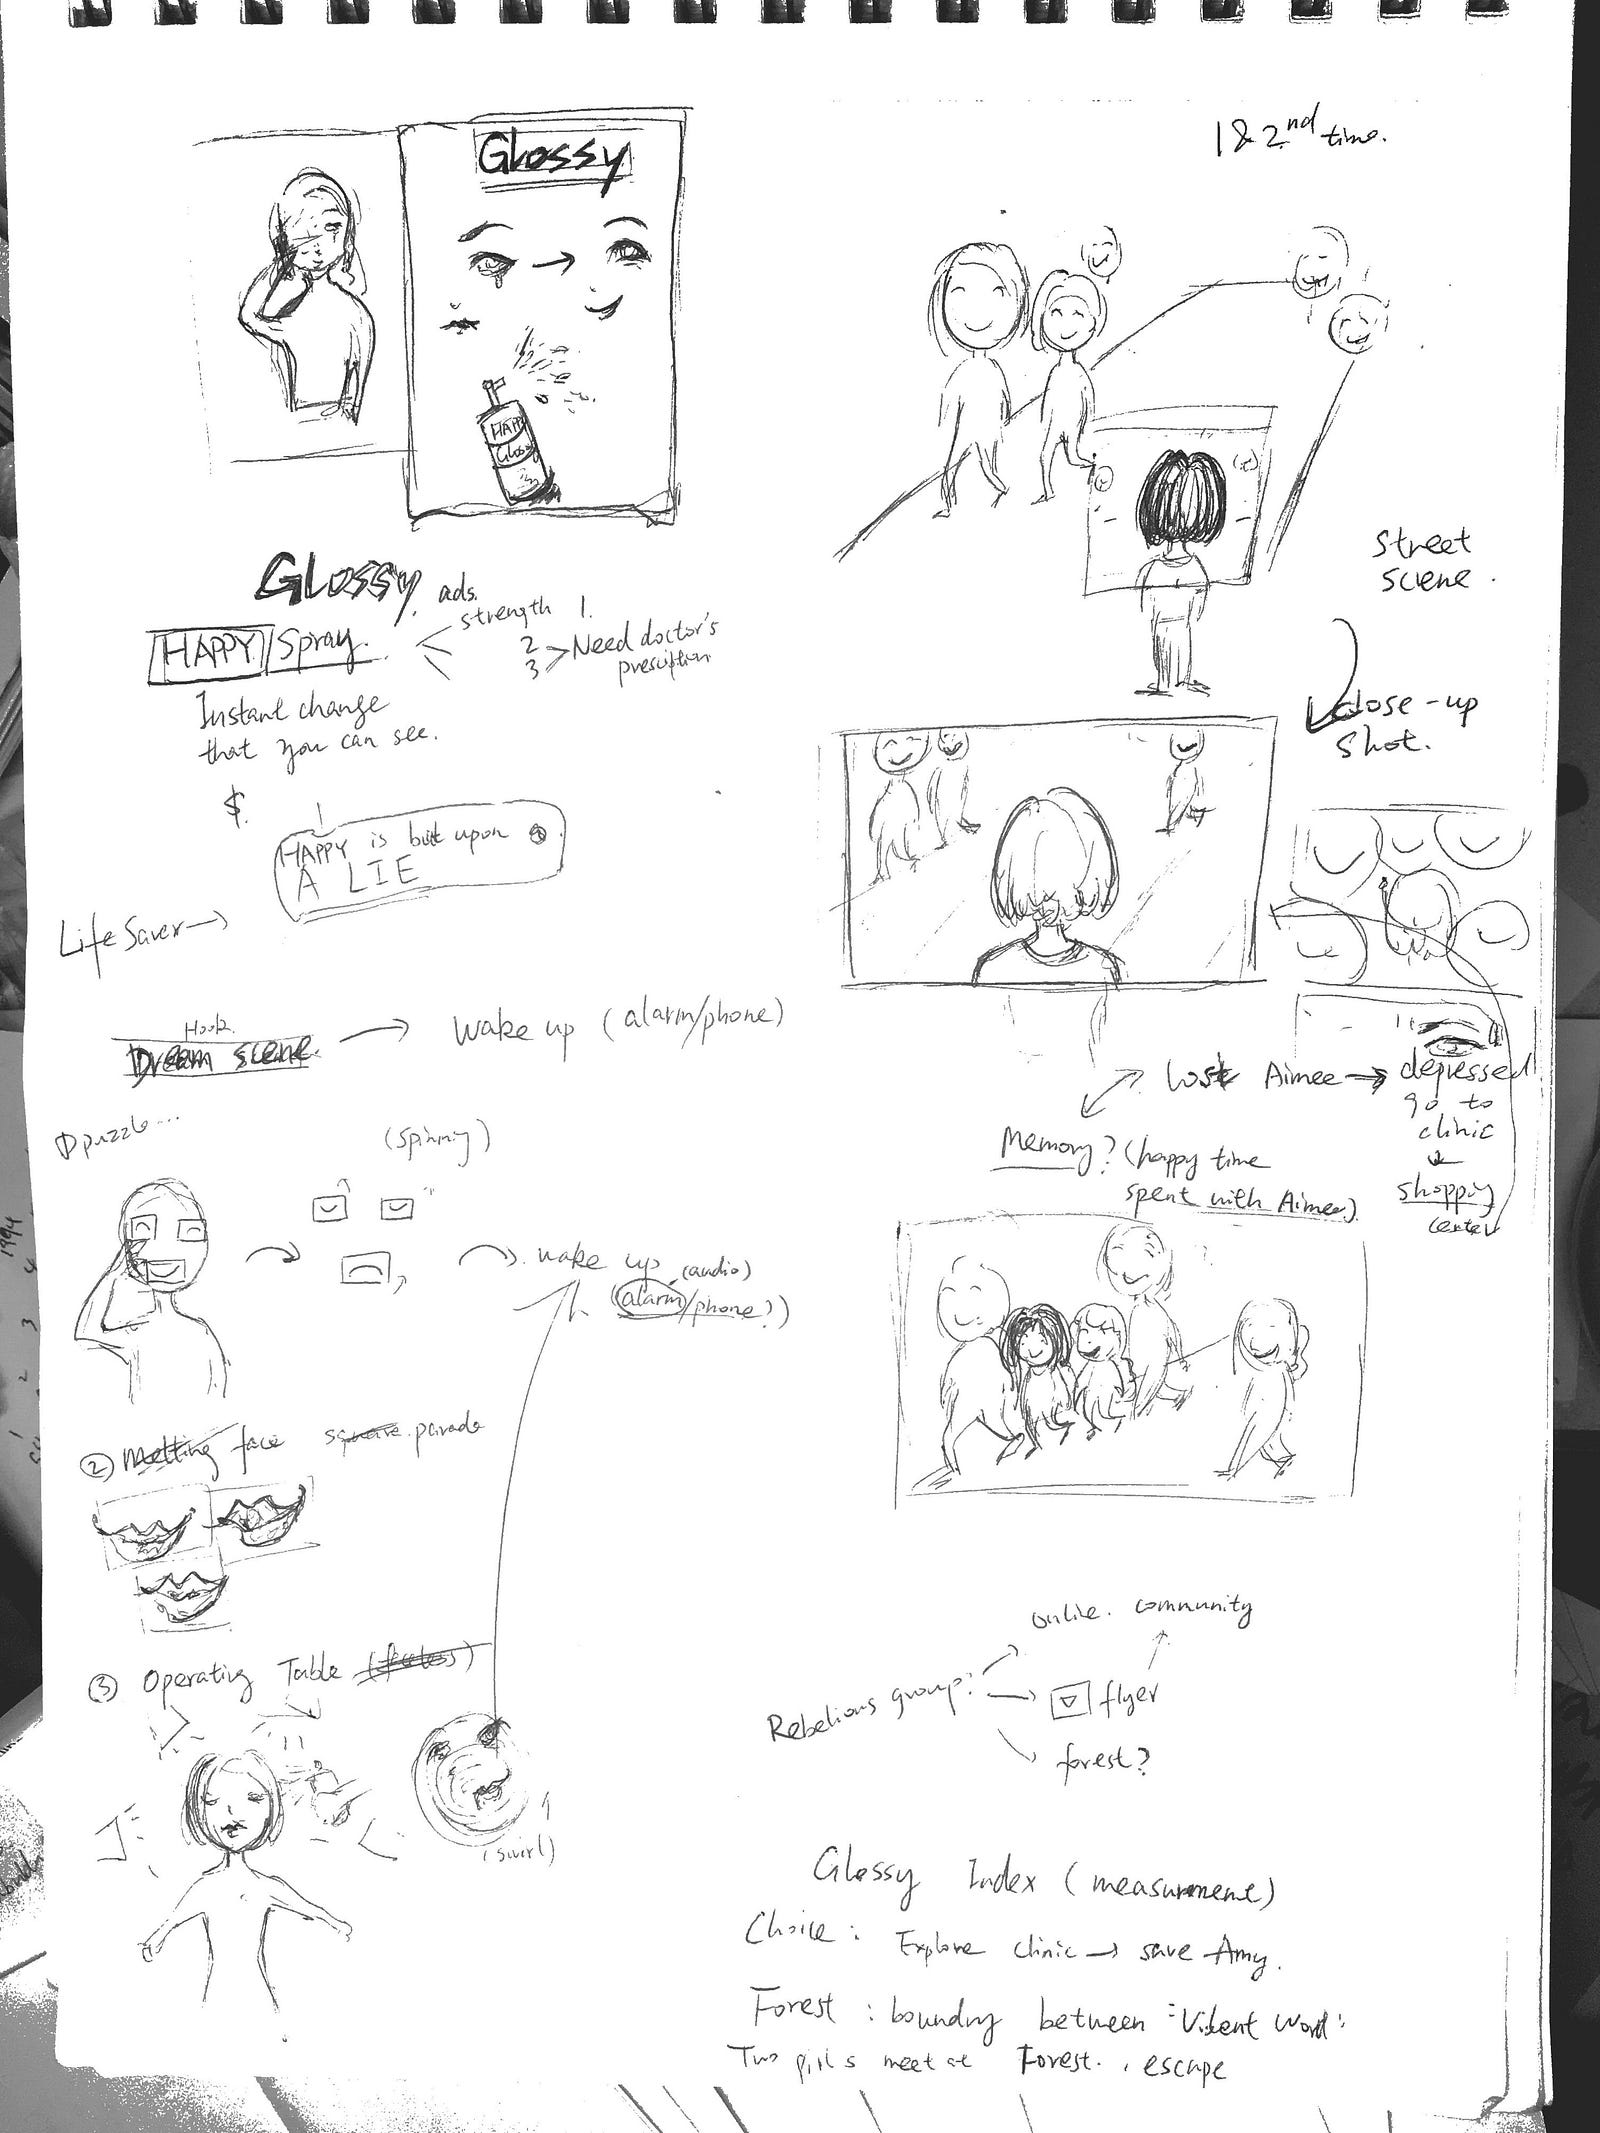 Glossy
HAPPY
Glossy
3
GLOSSY ads.
HAPPY Spray.
strength 1.
2
3 > Need doctor's
prescription
Instant change
that you can see.
$
HAPPY is built upon
A LIE
Life Saver →
Hook.
Dream scene. → wake up (alarm/phone)
① puzzle...
(spinning)
wake up (audio)
(alarm/phone?)
② Melting face square parade
③ Operating Table
(swirl)
1 & 2nd time.
street
sciene.
close-up
shot.
Lost Aimee → depressed
go to
clinic
↓
shopping
center
Memory? (happy time
spent with Aimee)
Rebelious group:
online. community
flyer
forest?
Glossy Index (measurmene)
Choice: Explore clinic → save Amy.
Forest: boundry between
Two girls meet at Forest. escape
1994
4
3
2
1